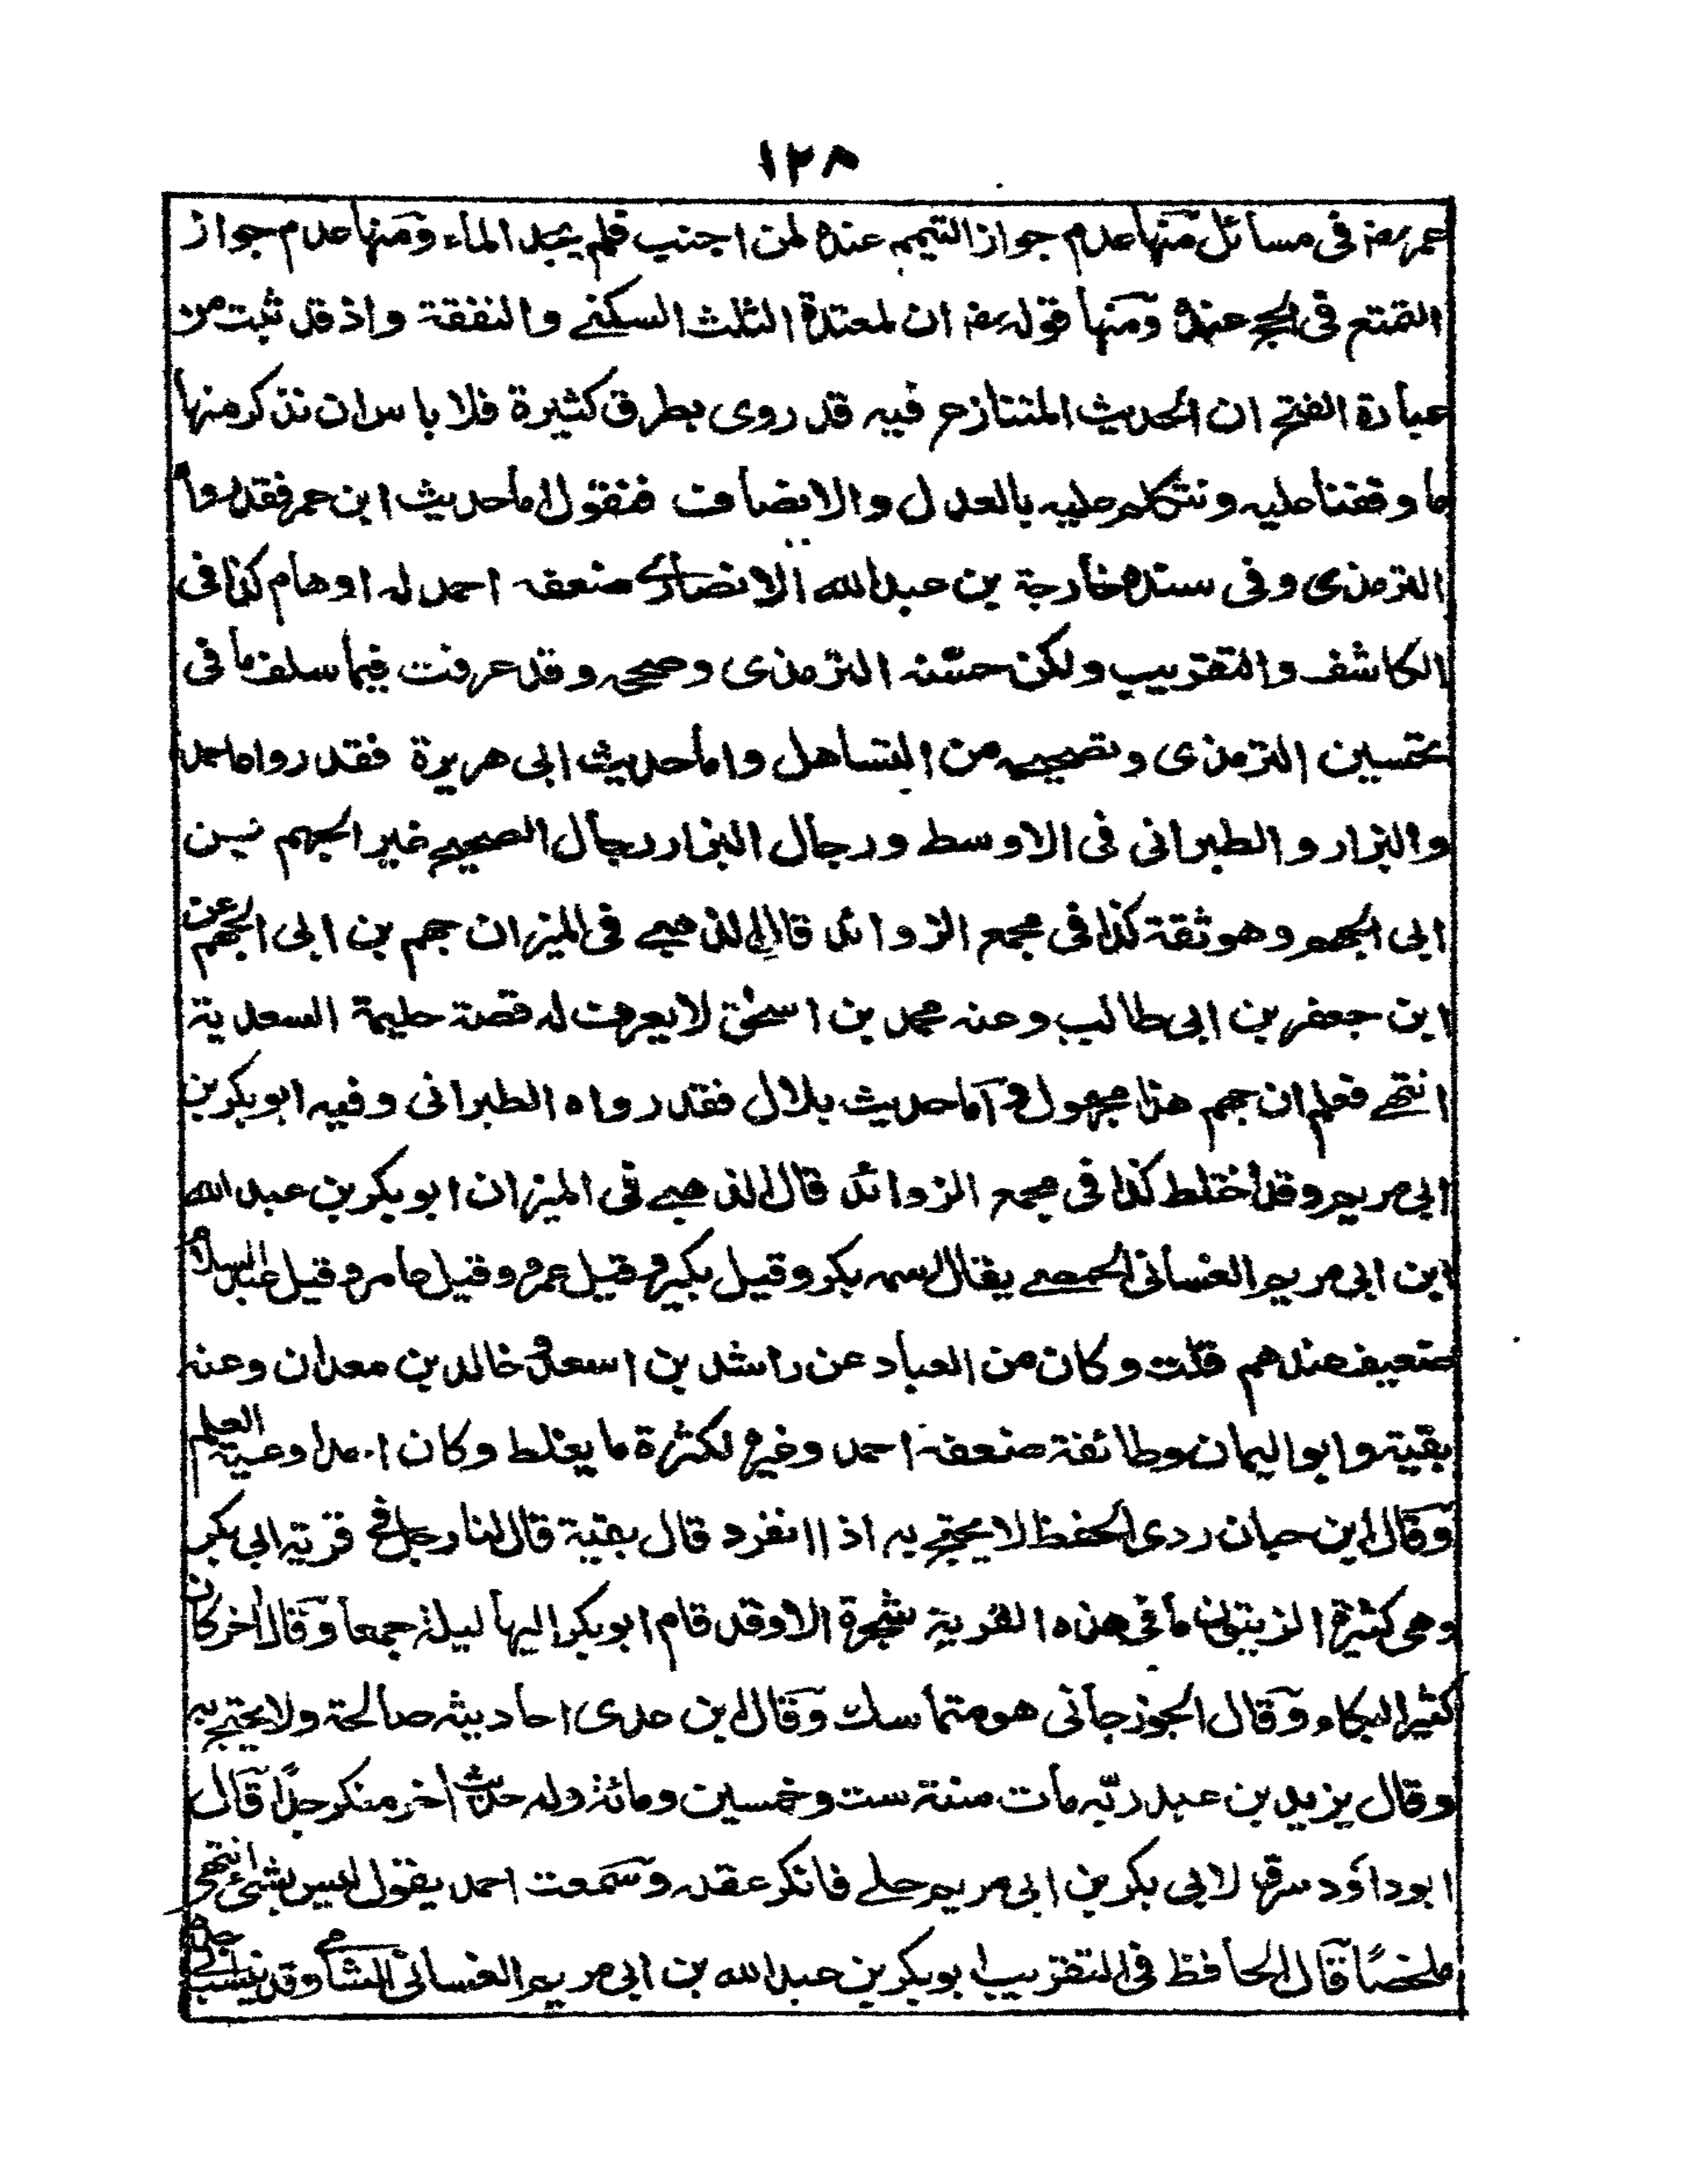 ١٢٨
عمر رضـ فى مسائل منها عدم جواز التيمم عندہ لمن اجنب فلم يجد الماء ومنها عدم جواز
التمتع فى الحج عندہ ومنها قوله رضـ ان لمعتدة الثلث السكنے والنفقة واذ قد ثبت من
عبارة الفتح ان الحديث المتنازع فيه قد روى بطرق كثيرة فلا باس ان نذكر منها
ما وقفنا عليه ونتكلم عليه بالعدل والانصاف فنقول اما حديث ابن عمر فقد رواہ
الترمذى وفى سندہ خارجة بن عبد الله الانصارى ضعفه احمد له اوهام كذا فى
الكاشف والتقريب ولكن حسّنه الترمذى وصححه وقد عرفت فيما سلف ما فى
تحسين الترمذى وتصحيحه من التساهل واما حديث ابى هريرة فقد رواہ احمد
والبزار والطبرانى فى الاوسط ورجال البزار رجال الصحيح غير الجهم بن
ابى الجهم وهو ثقة كذا فى مجمع الزوائد قال الذهبے فى الميزان جهم بن ابى الجهم عن
ابن جعفر بن ابى طالب وعنه محمد بن اسحٰق لا يعرف له قصة حليمة السعدية
انتهے فعلم ان جهم هذا مجهول واما حديث بلال فقد رواه الطبرانى وفيه ابو بكر بن
ابى مريم وقد اختلط كذا فى مجمع الزوائد قال الذهبے فى الميزان ابو بكر بن عبد الله
ابن ابى مريم الغسانى الحمصے يقال اسمه بكر وقيل بكير وقيل عمرو وقيل عامر وقيل عبد السلام
ضعيف عندهم قلت وكان من العباد عن راشد بن اسعد وخالد بن معدان وعنه
بقية وابو اليمان وطائفة ضعفه احمد وغيرہ لكثرة ما يغلط وكان احد اوعية العلم
وقال ابن حبان ردى الحفظ لا يحتج به اذا انفرد قال بقية قال لنا رجل فى قرية ابى بكر
وهى كثيرة الزيتون ما فى هذه القرية شجرة الا وقد قام ابو بكر اليها ليلة جمعا وقال اخر كان
كثير البكاء وقال الجوزجانى هو متماسك وقال ابن عدى احاديثه صالحة ولا يحتج به
وقال يزيد بن عبد ربّه مات سنة ست وخمسين ومائة وله حديث اخر منكر جدًا قال
ابو داؤد سرق لابى بكر بن ابى مريم حلے فانكر عقله وسمعت احمد يقول ليس بشئ انتهى
ملخصًا قال الحافظ فى التقريب ابو بكر بن عبد الله بن ابى مريم الغسانى الشامى وقد ينسب الى جدہ